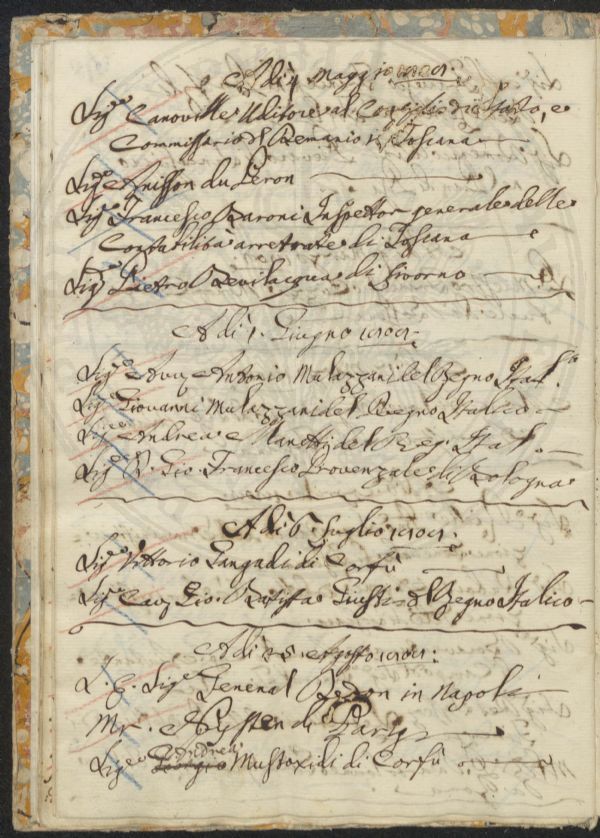 A dì 4 Maggio 1809:
Sig.e Canouille Uditore al Consiglio di Stato, e
Commissario d. Demanio in Toscana
Sig.e Anisson du Peron
Sig.e Francesco Baroni Inspettor generale delle
Contabilità arretrate di Toscana
Sig.e Pietro Bevilacqua di Livorno
A dì 1. Giugno 1809:
Sig.e Avv. Antonio Mulazzani del Regno Ital.co
Sig.e Giovanni Mulazzani del Regno Italico
Sig.e Andrea Manetti del Reg. Ital.
Sig.e D. Gio. Francesco Provenzale di Bologna
A dì 6. Luglio 1809:
Sig.e Vittorio di Corfù
Sig.e Cav. Gio. Batista Giusti d. Regno Italico
A dì 25. Agosto 1809:
S. E. Sig.e General in Napoli
Mr. Nysten di Parigi
Sig.e Andrea Mustoxidi di Corfù